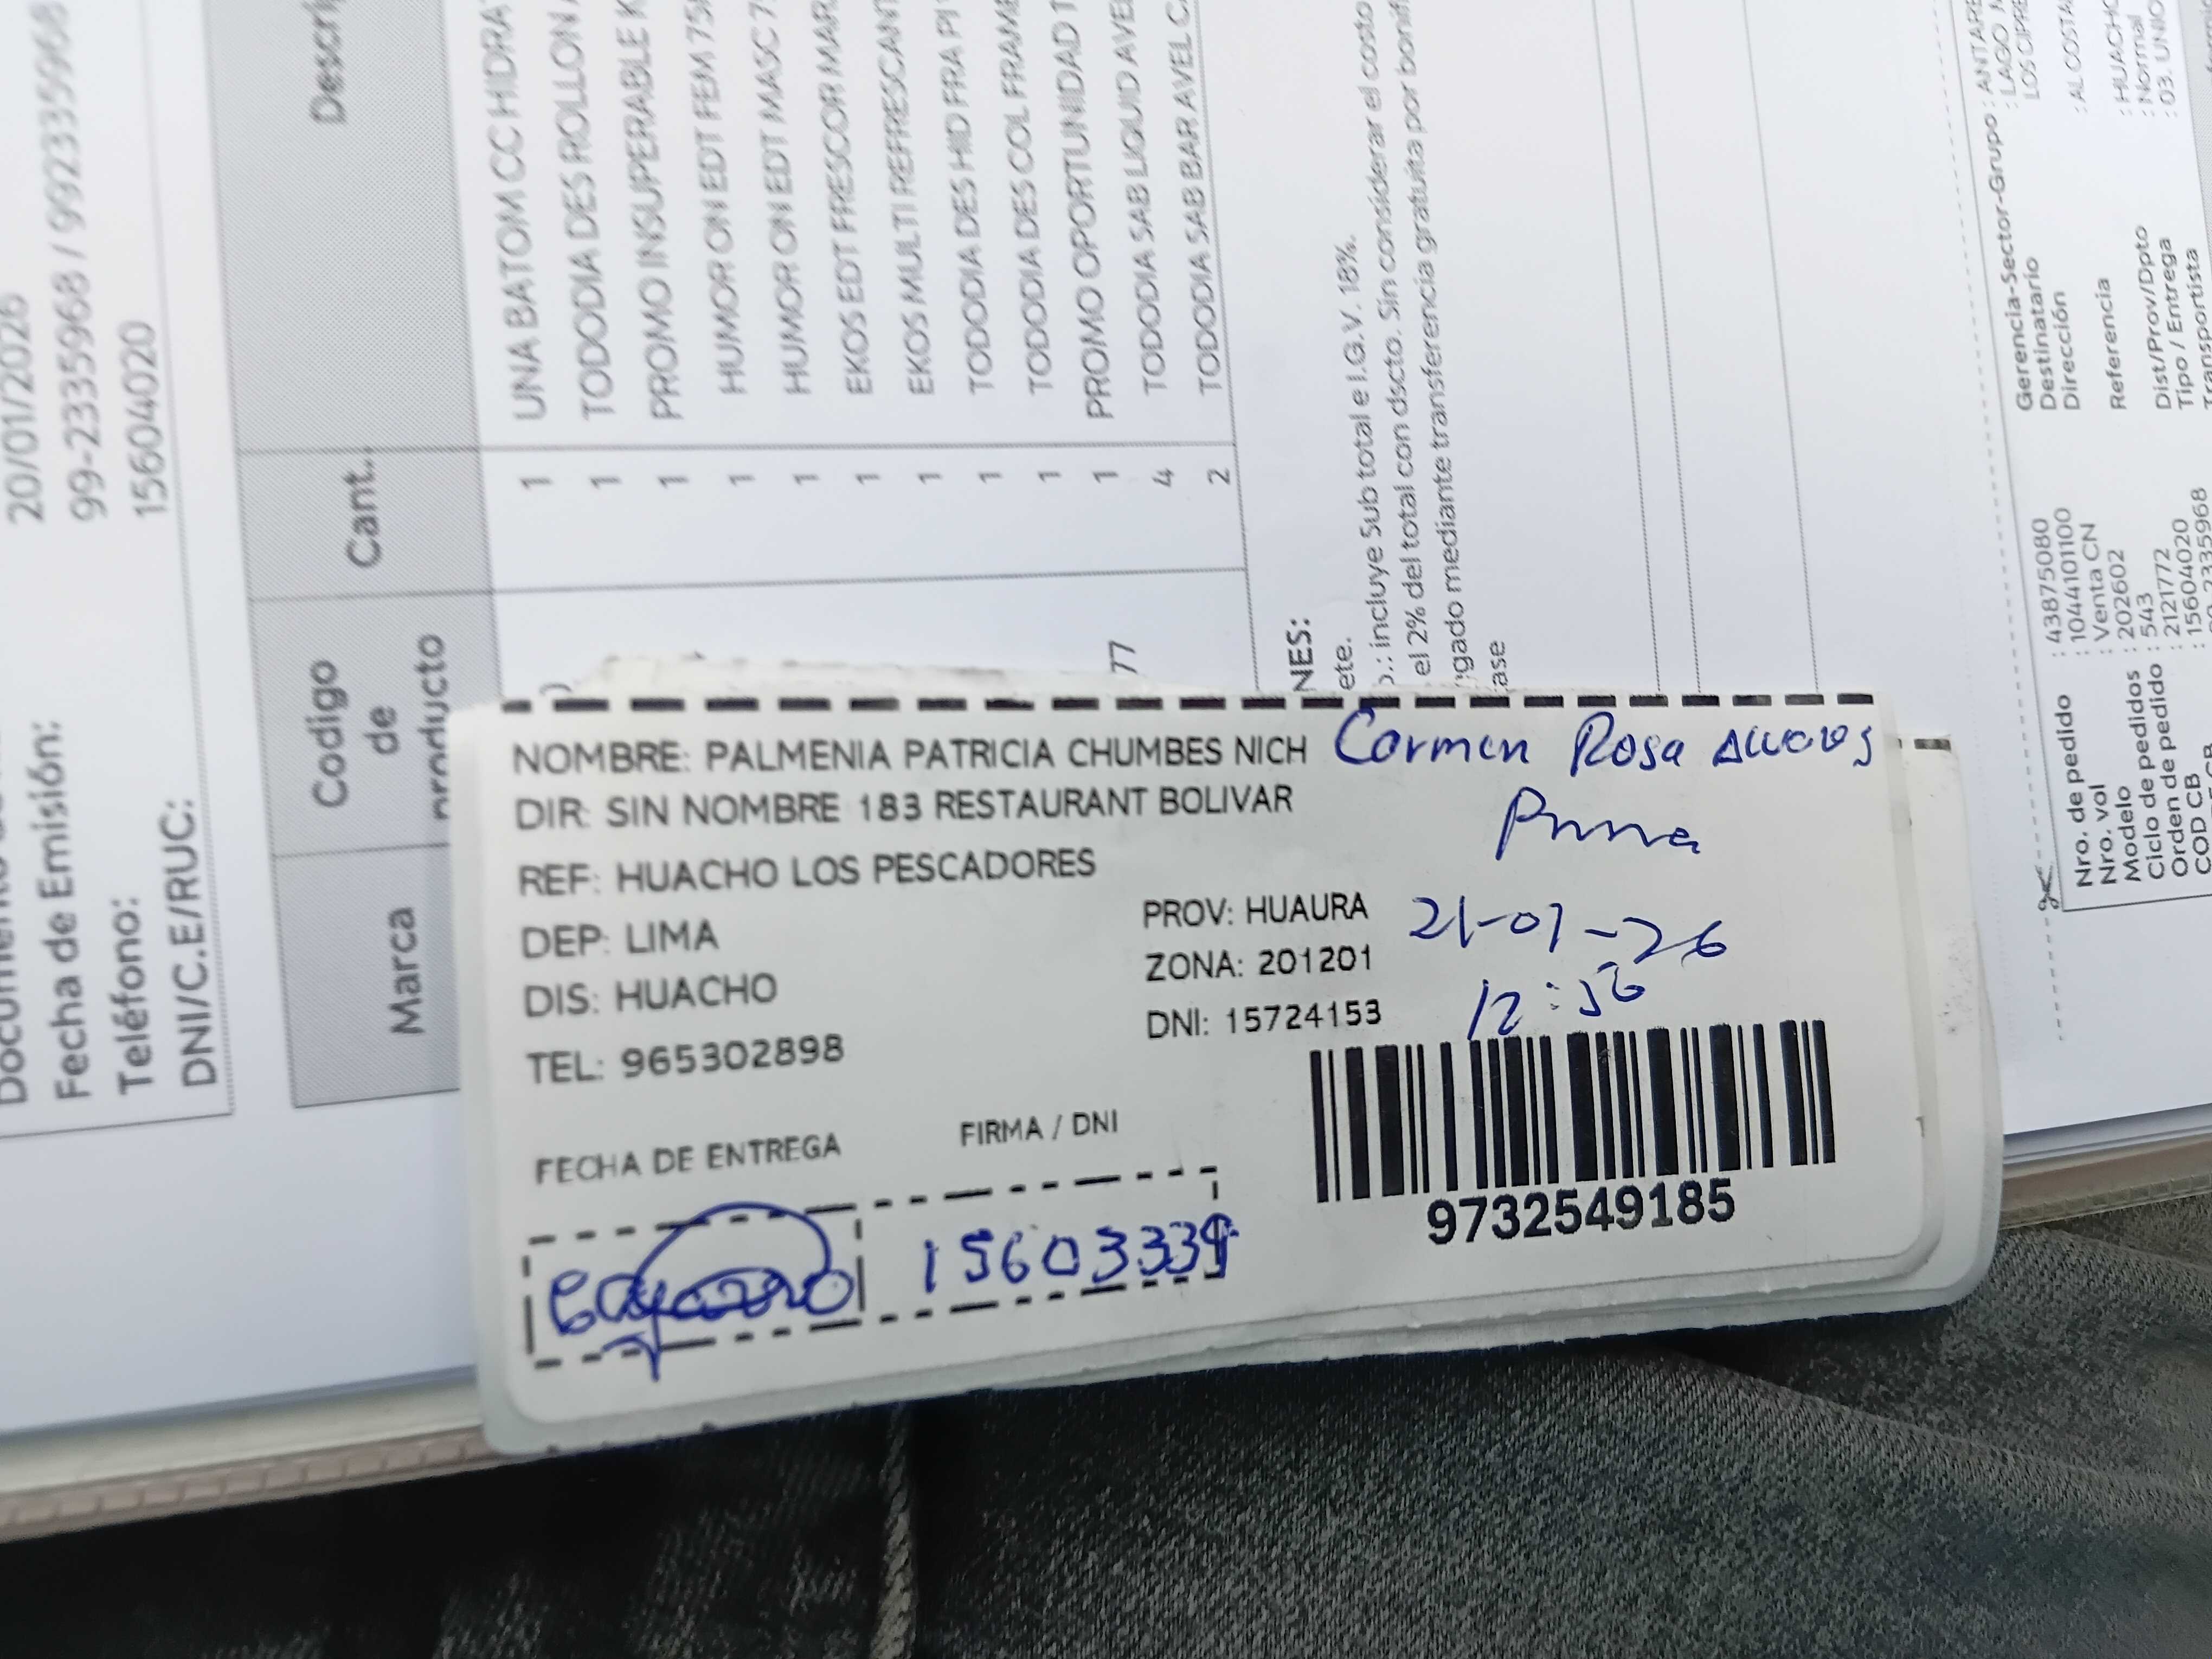 NOMBRE: PALMENIA PATRICIA CHUMBES NICH Carmen Rosa
Prima
DIR: SIN NOMBRE 183 RESTAURANT BOLIVAR
REF: HUACHO LOS PESCADORES
DEP: LIMA
PROV: HUAURA 21-01-26
DIS: HUACHO
ZONA: 201201 12:56
TEL: 965302898
DNI: 15724153
FECHA DE ENTREGA
FIRMA / DNI
1560333
9732549185
Fecha de Emisión: 20/01/2026
Teléfono: 99-2335968 / 992335968
DNI/C.E/RUC: 15604020
Marca
Codigo de producto
Cant..
Descri
1 UNA BATOM CC HIDRA
1 TODODIA DES ROLLON
1 PROMO INSUPERABLE K
1 HUMOR ON EDT FEM 75
1 HUMOR ON EDT MASC 7
1 EKOS EDT FRESCOR MAR
1 EKOS MULTI REFRESCANT
1 TODODIA DES HID FRA PJ
1 TODODIA DES COL FRAM
77 1 PROMO OPORTUNIDAD 1
4 TODODIA SAB LIQUID AVE
2 TODODIA SAB BAR AVEL C
NES:
ete.
o.: incluye Sub total e I.G.V. 18%.
el 2% del total con dscto. Sin considerar el costo
gado mediante transferencia gratuita por bonif
ase
Nro. de pedido : 43875080
Nro. vol : 1044101100
Modelo : Venta CN
Ciclo de pedidos : 202602
Orden de pedido : 543
COD CB : 2121772
: 15604020
2335968
Gerencia-Sector-Grupo : ANTARE
Destinatario : LAGO
Dirección LOS CIPRE
Referencia : AL COSTA
Dist/Prov/Dpto : HUACHO
Tipo / Entrega : Normal
Transportista : 03. UNIO